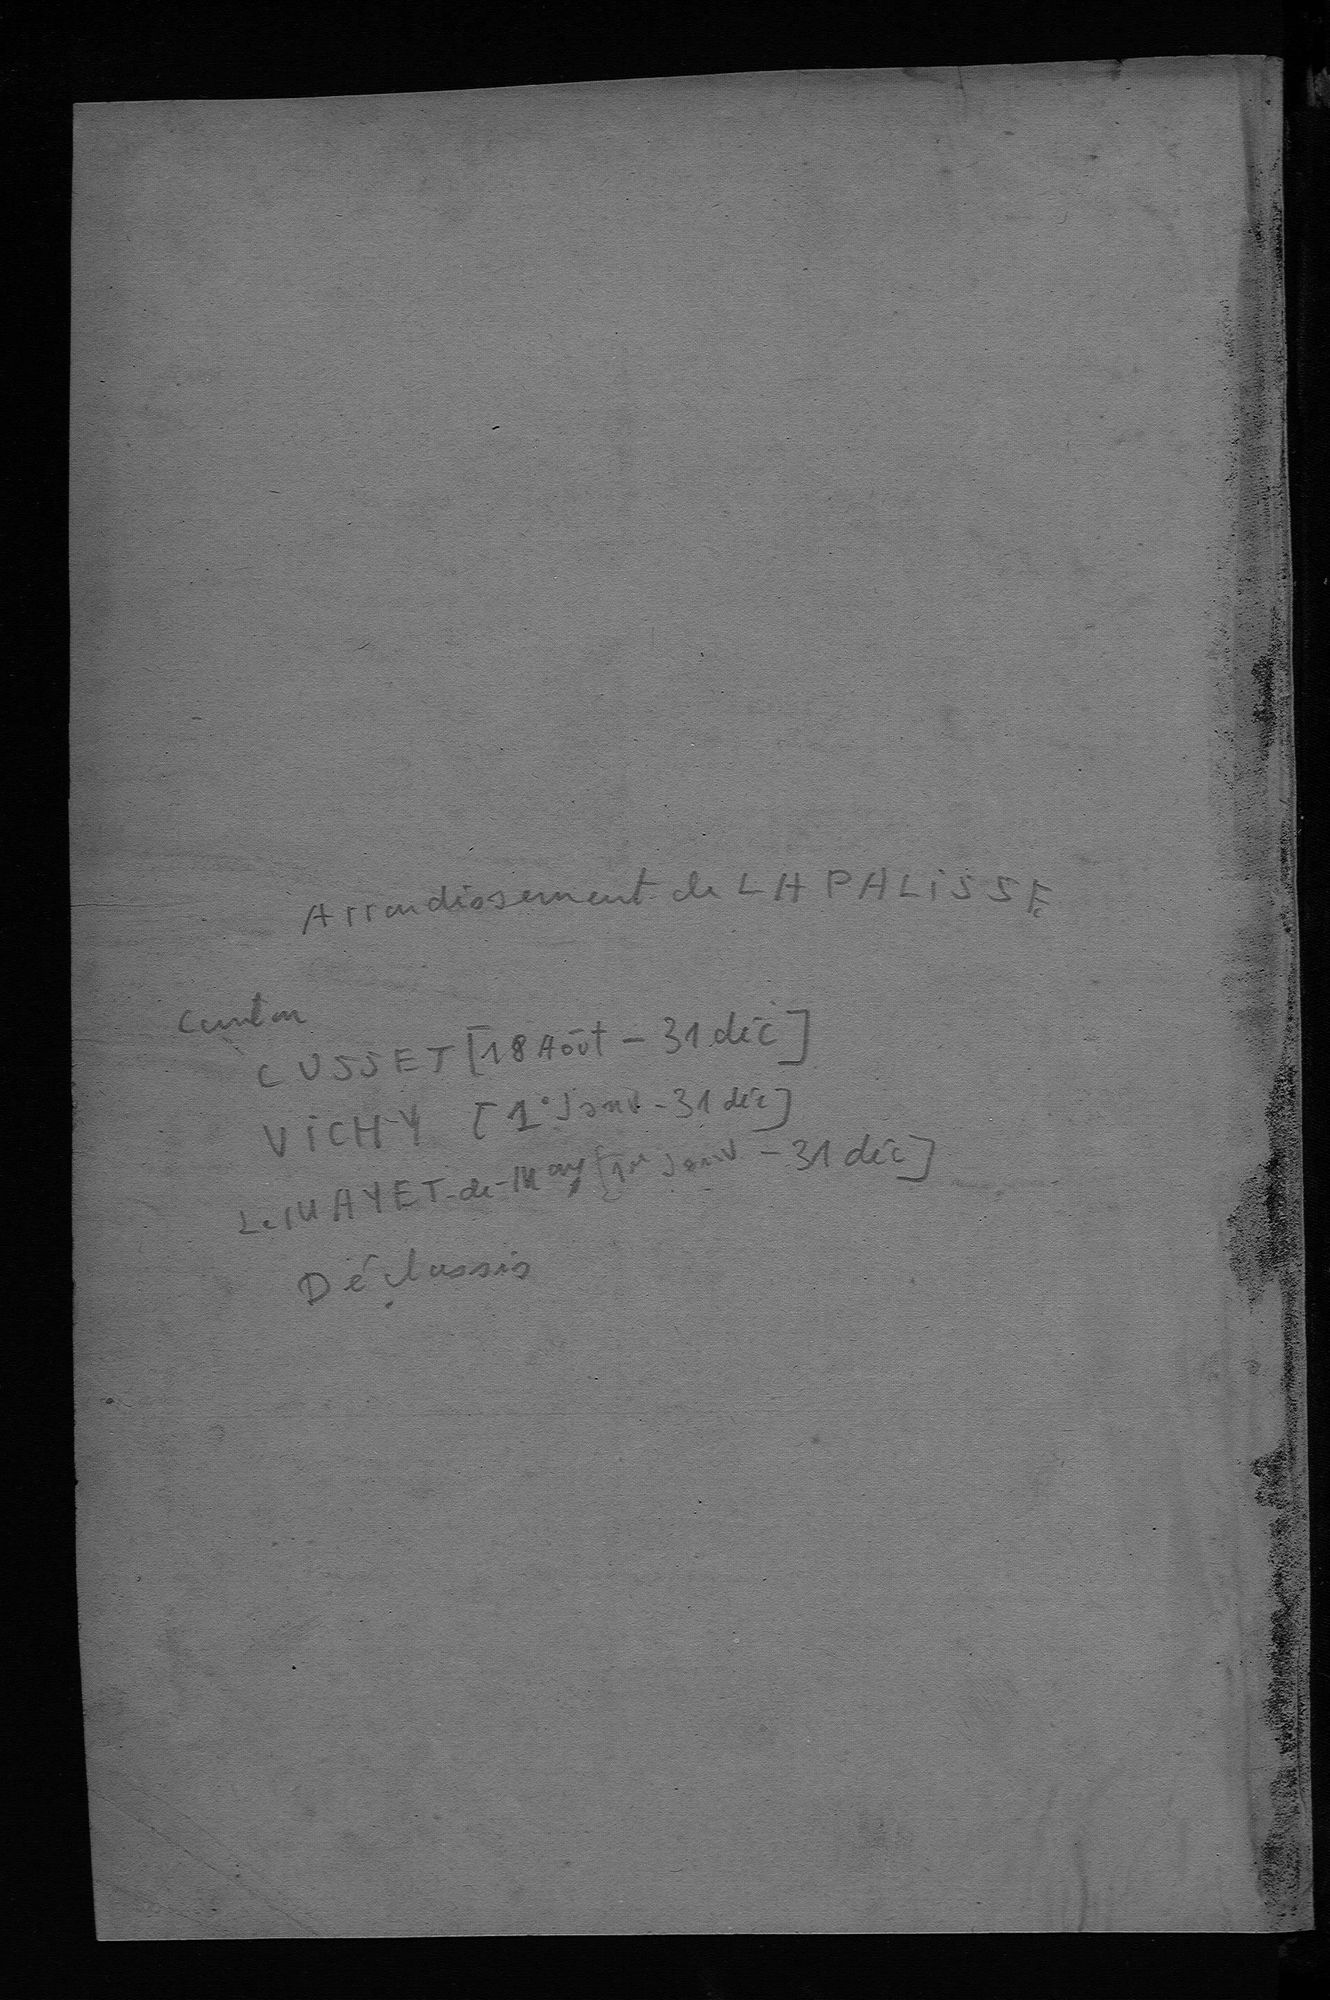 Arrondissement de LAPALISSE
Canton
CUSSET [18 Août - 31 déc]
VICHY [1° Janv - 31 déc]
Le MAYET-de-Mony [1er Janv - 31 déc]
Déclassés